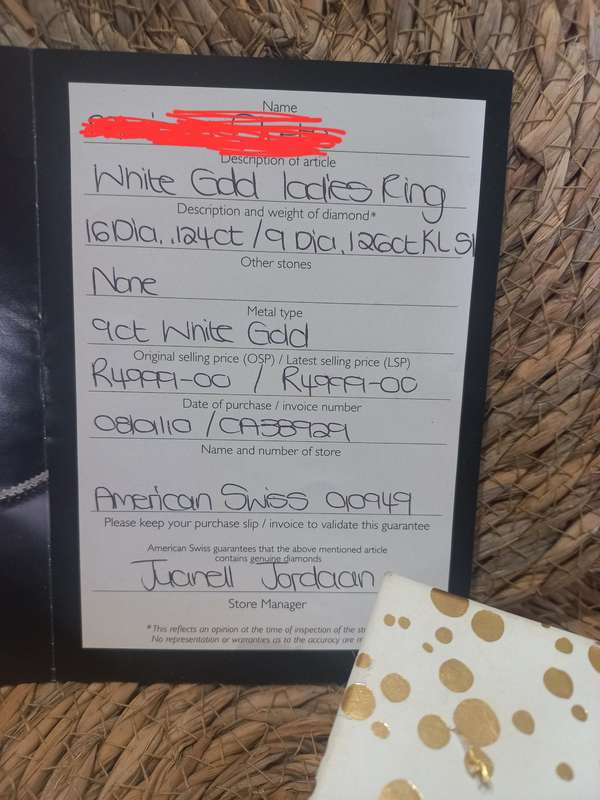 Name
Description of article
White Gold ladies Ring
Description and weight of diamond*
16 Dia, .124ct / 9 Dia, .126ct KL SI
Other stones
None
Metal type
9ct White Gold
Original selling price (OSP) / Latest selling price (LSP)
R4999-00 / R4999-00
Date of purchase / invoice number
08/01/10 / CA38929
Name and number of store
American Swiss 010949
Please keep your purchase slip / invoice to validate this guarantee
American Swiss guarantees that the above mentioned article
contains genuine diamonds
Juanell Jordaan
Store Manager
*This reflects an opinion at the time of inspection of the
No representation or warranties as to the accuracy are